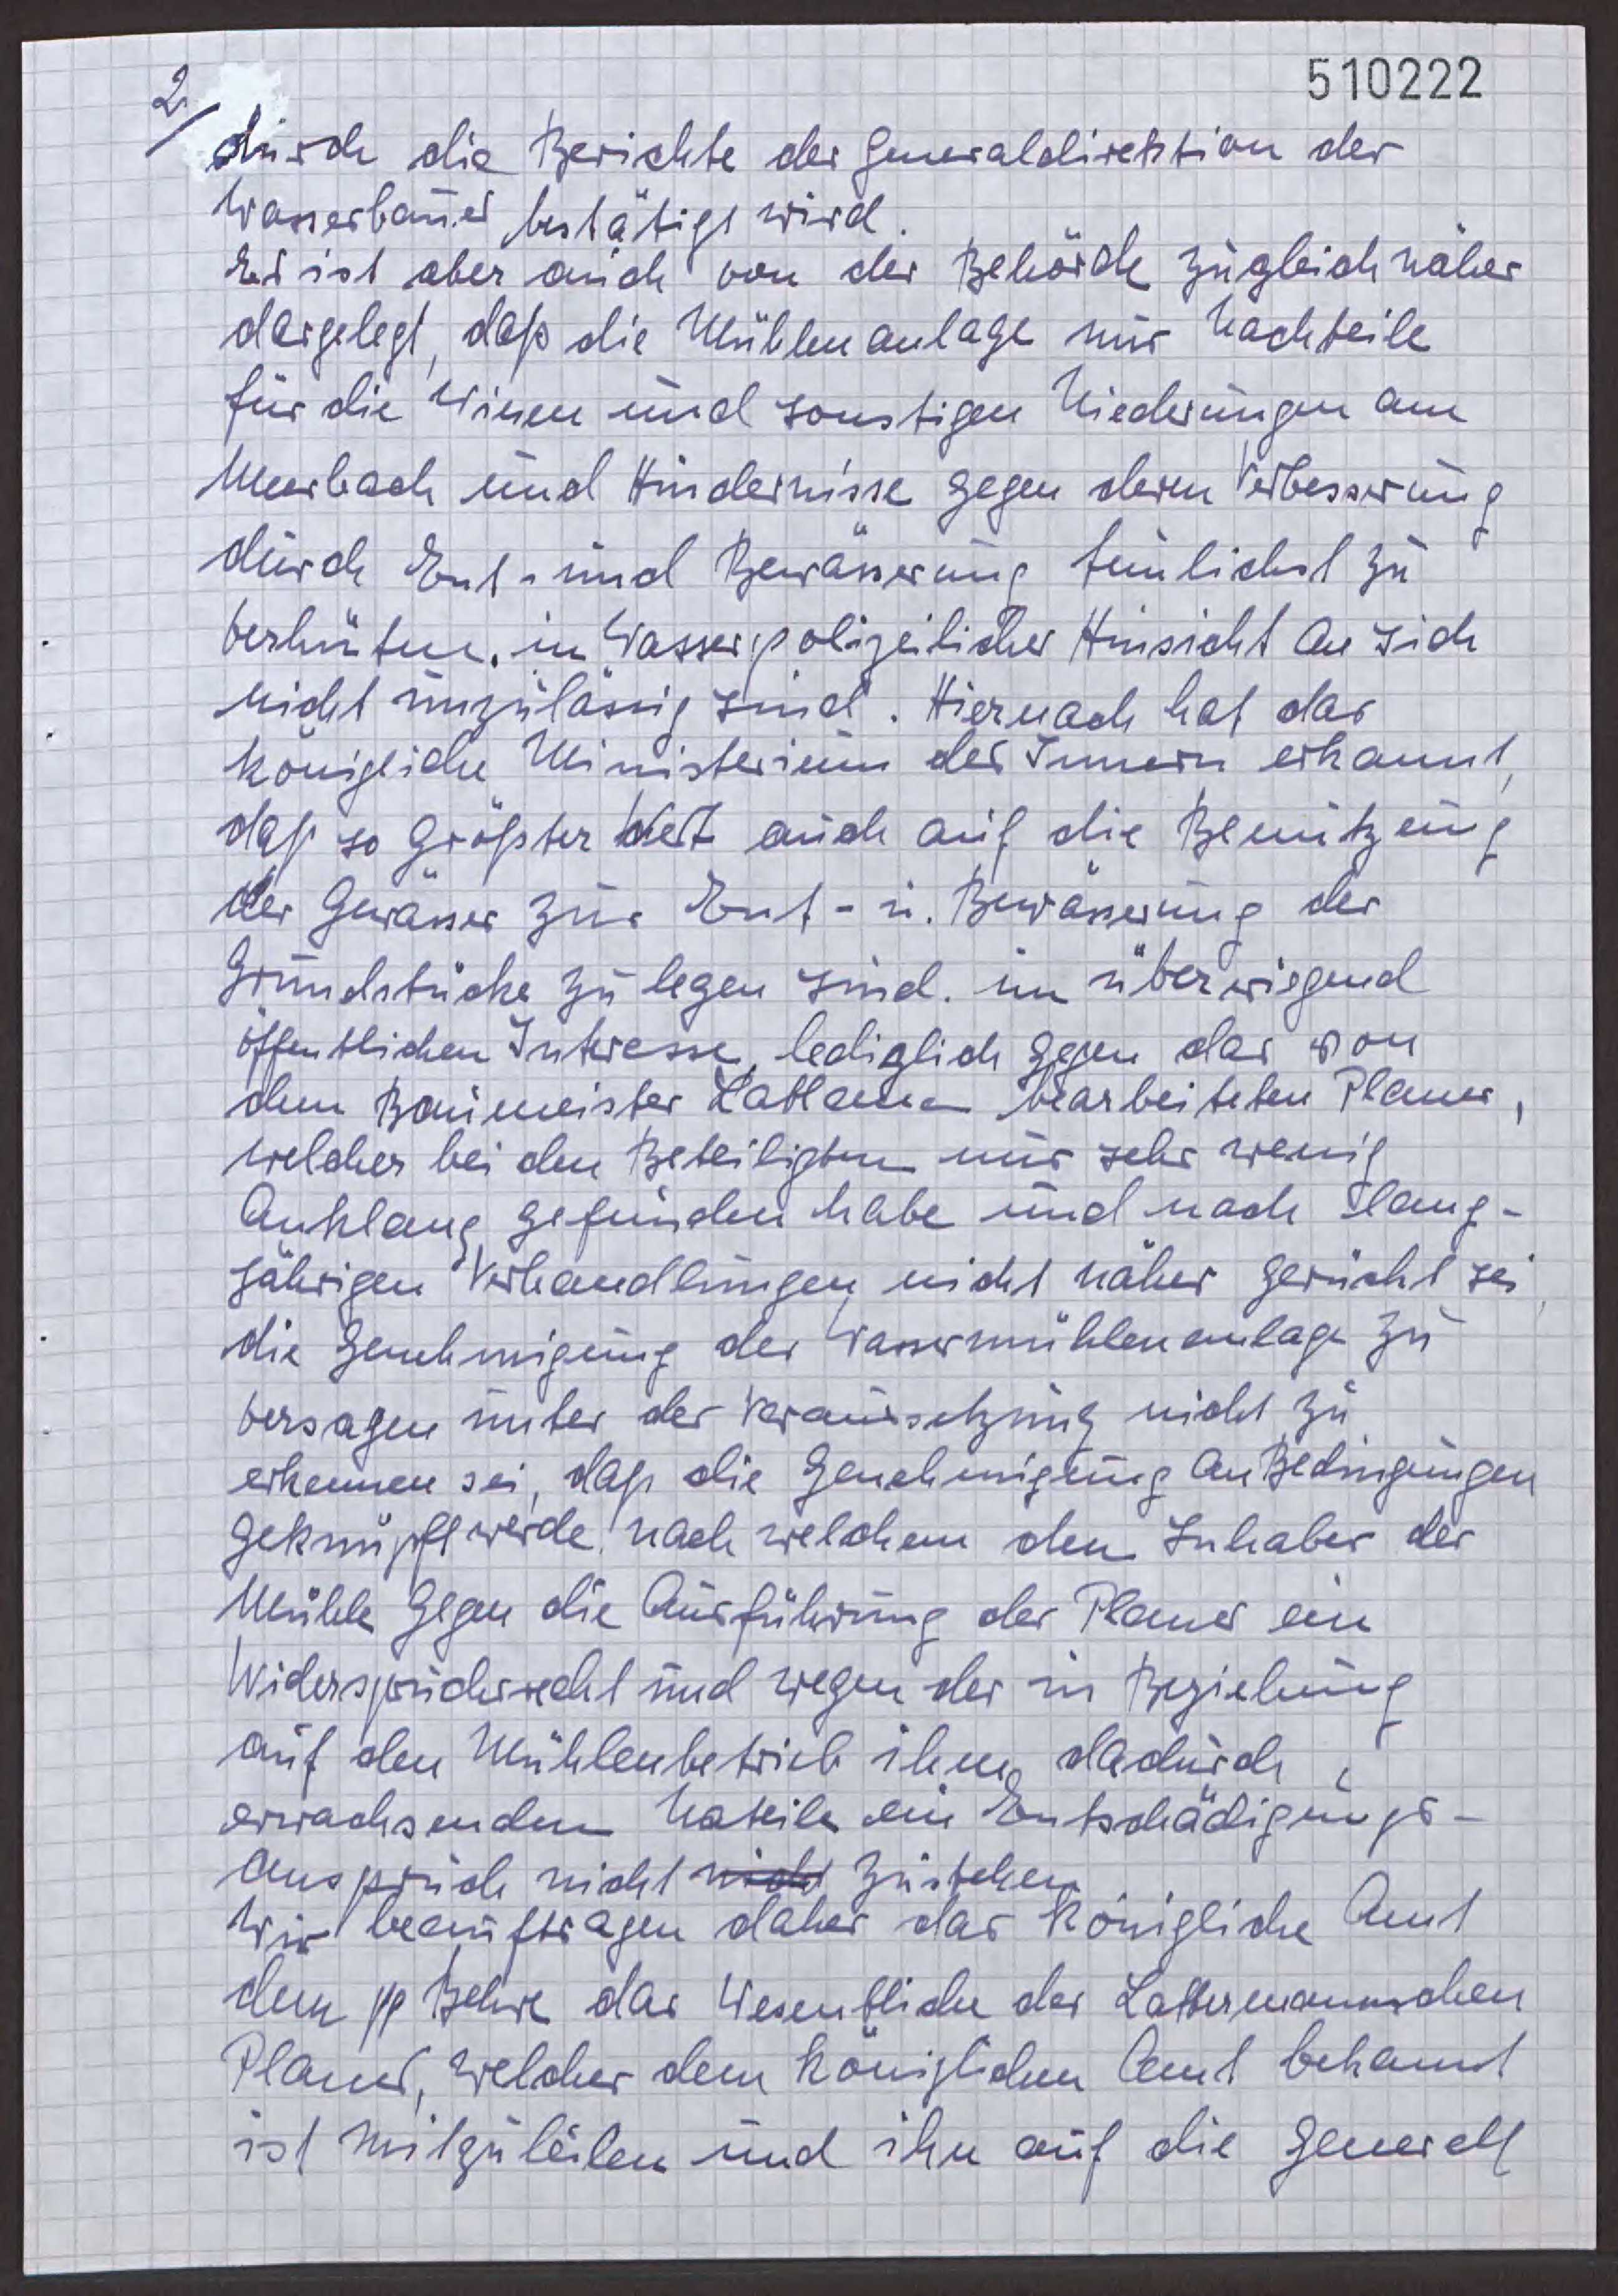 510222
2/
durch die Berichte der Generaldirektion der
Wasserbauer bestätigt wird.
Es ist aber auch von der Behörde zugleich näher
dargelegt, daß die Mühlenanlage nur Nachteile
für die Wiesen und sonstigen Niederungen am
Meerbach und Hindernisse gegen deren Verbesserung
durch Ent- und Bewässerung tunlichst zu
verhüten. in Wasserpolizeilicher Hinsicht an sich
nicht unzulässig sind. Hiernach hat das
königliche Ministerium des Innern erkannt,
daß so größter Wert auch auf die Benutzung
der Gewässer zur Ent- u. Bewässerung der
Grundstücke zu legen sind. im überwiegend
öffentlichen Interesse, lediglich gegen das von
dem Baumeister bearbeiteten Planes,
welcher bei den Beteiligten nur sehr wenig
Anklang gefunden habe und nach lang-
jährigen Verhandlungen nicht näher gerückt sei,
die Genehmigung der Wassermühlenanlage zu
versagen unter der Voraussetzung nicht zu
erkennen sei, daß die Genehmigung an Bedingungen
geknüpft werde, nach welchem den Inhaber der
Mühle gegen die Ausführung des Planes ein
Widerspruchsrecht und wegen der in Beziehung
auf den Mühlenbetrieb ihm dadurch
erwachsenden Nateile ein Entschädigungs-
anspruch nicht nicht zustehen
Wir beauftragen daher das Königliche Amt
dem pp Behre das Wesentliche des Lattermannschen
Planes, welcher dem Königlichen Amt bekannt
ist mitzuteilen und ihn auf die generell